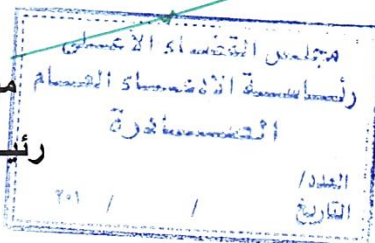 مجلس القضاء الأعلى
رئاسة الادعاء العام
الصادرة
العدد/
التاريخ / / ٢٠١